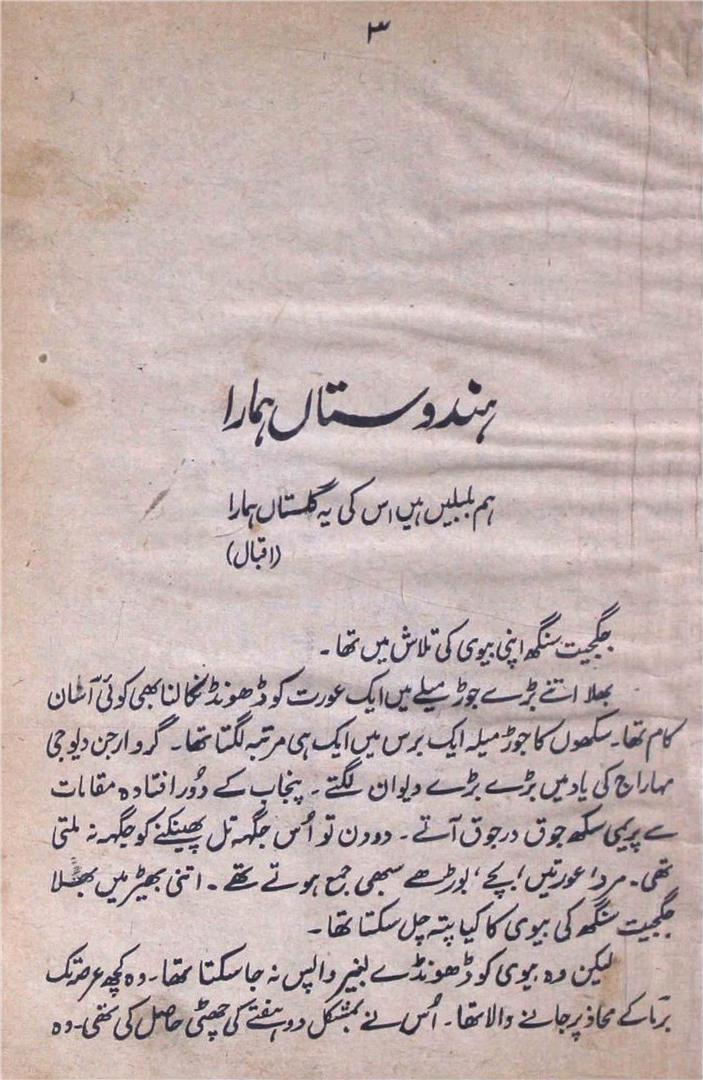 ۳
ہندوستاں ہمارا
ہم بلبلیں ہیں اس کی یہ گلستاں ہمارا
(اقبال)
جگجیت سنگھ اپنی بیوی کی تلاش میں تھا۔
بھلا اتنے بڑے جوڑ میلے میں ایک عورت کو ڈھونڈ نکالنا بھی کوئی آسان
کام تھا۔ سکھوں کا جوڑ میلہ ایک برس میں ایک ہی مرتبہ لگتا تھا۔ گرو ارجن دیو جی
مہاراج کی یاد میں بڑے بڑے دیوان لگتے۔ پنجاب کے دُور افتادہ مقامات
سے پریمی سکھ جوق در جوق آتے۔ دو دن تو اُس جگہہ تل پھینکنے کو جگہہ نہ ملتی
تھی۔ مرد، عورتیں، بچے، بوڑھے سبھی جمع ہوتے تھے۔ اتنی بھیڑ میں بھلا
جگجیت سنگھ کی بیوی کا کیا پتہ چل سکتا تھا۔
لیکن وہ بیوی کو ڈھونڈے بغیر واپس نہ جا سکتا تھا۔ وہ کچھ عرصہ تک
برما کے محاذ پر جانے والا تھا۔ اُس نے بمشکل دو ہفتے کی چھٹی حاصل کی تھی۔ وہ